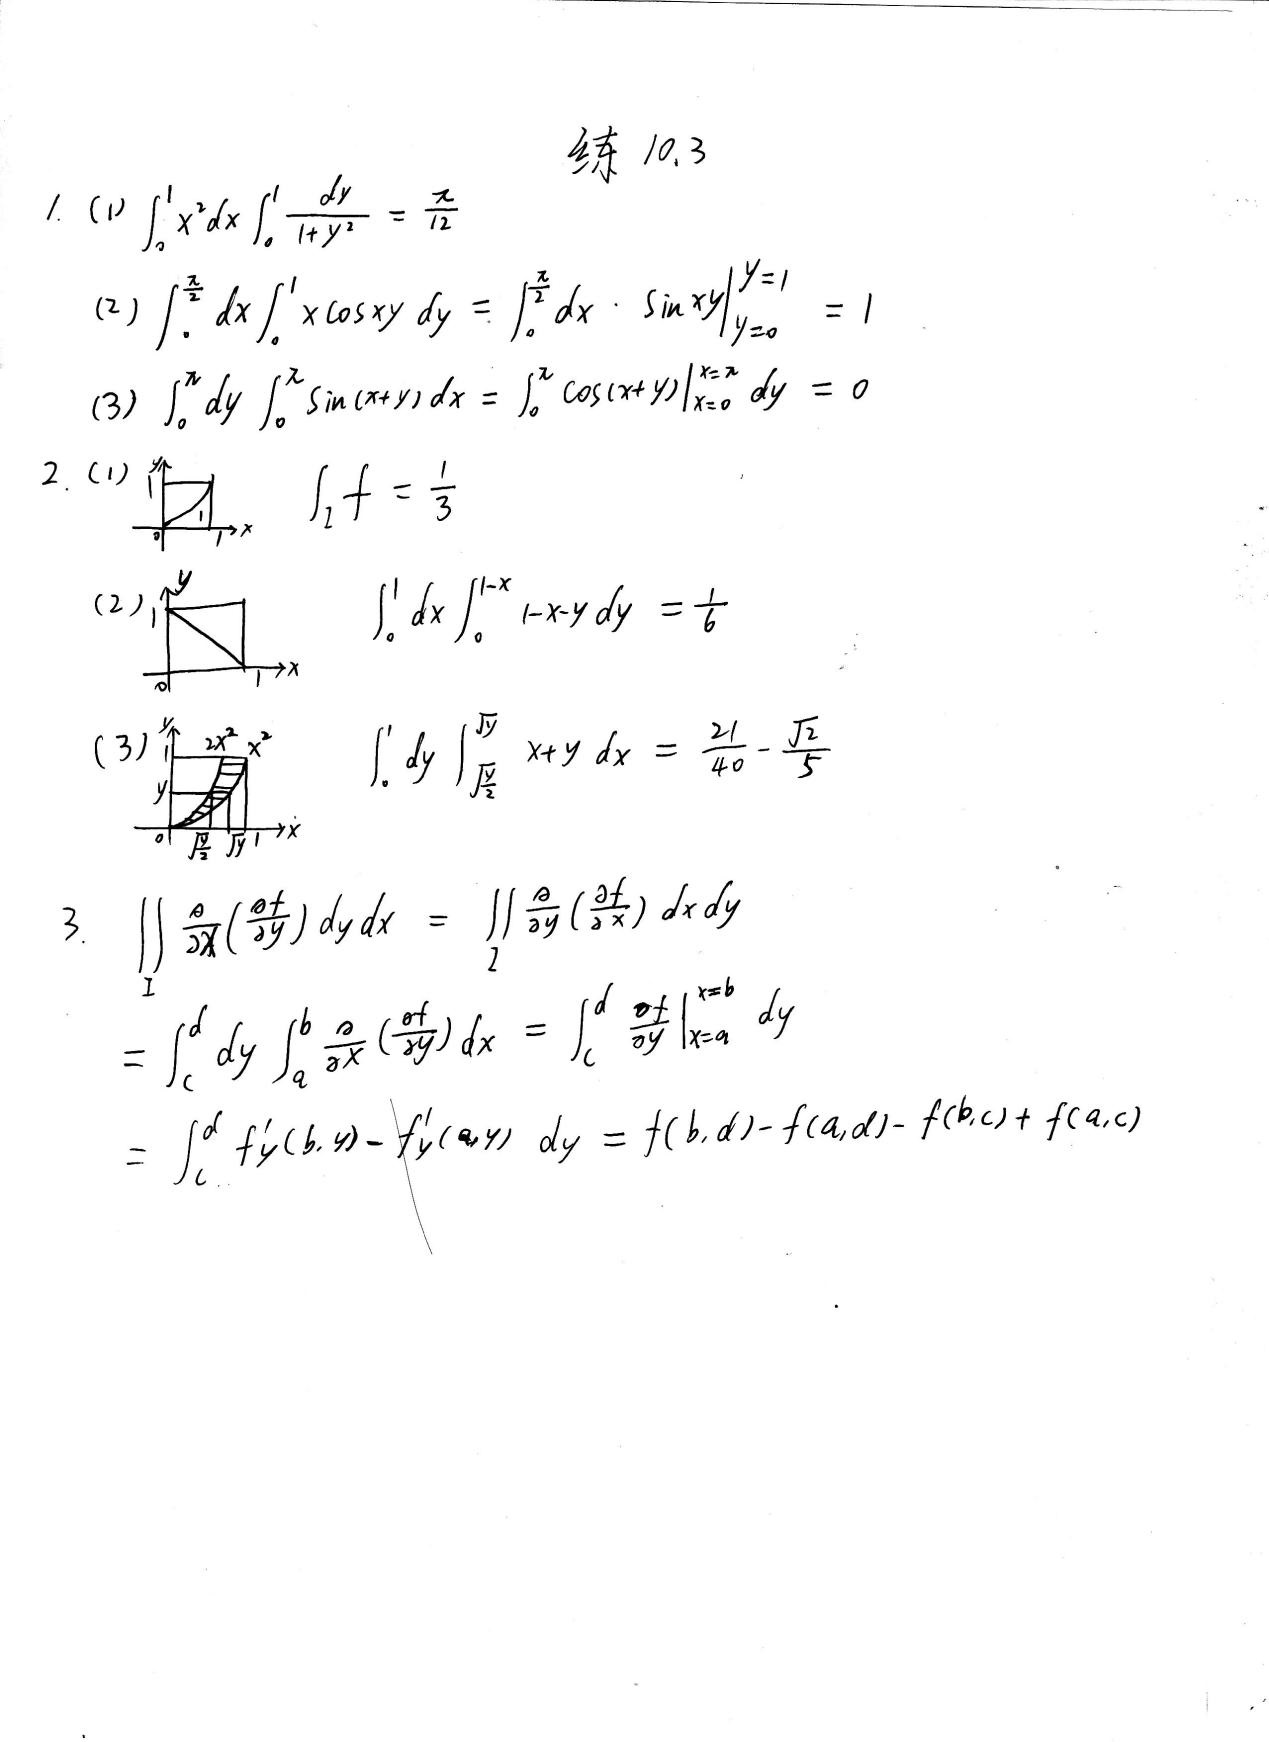 练 10.3
1. (1) ∫₀¹ x²dx ∫₀¹ dy/(1+y²) = π/12
(2) ∫₀^(π/2) dx ∫₀¹ x cos xy dy = ∫₀^(π/2) dx · sin xy |_(y=0)^(y=1) = 1
(3) ∫₀^π dy ∫₀^π sin(x+y) dx = ∫₀^π cos(x+y) |_(x=0)^(x=π) dy = 0
2. (1) y 1 1 0 1 x ∫_I f = 1/3
(2) y 1 0 1 x ∫₀¹ dx ∫₀^(1-x) 1-x-y dy = 1/6
(3) y 1 2x² x² y 0 √(y/2) √y 1 x ∫₀¹ dy ∫_(√(y/2))^(√y) x+y dx = 21/40 - √2/5
3. ∬_I ∂/∂x (∂f/∂y) dy dx = ∬_I ∂/∂y (∂f/∂x) dx dy
= ∫_c^d dy ∫_a^b ∂/∂x (∂f/∂y) dx = ∫_c^d ∂f/∂y |_(x=a)^(x=b) dy
= ∫_c^d f'y(b,y) - f'y(a,y) dy = f(b,d) - f(a,d) - f(b,c) + f(a,c)